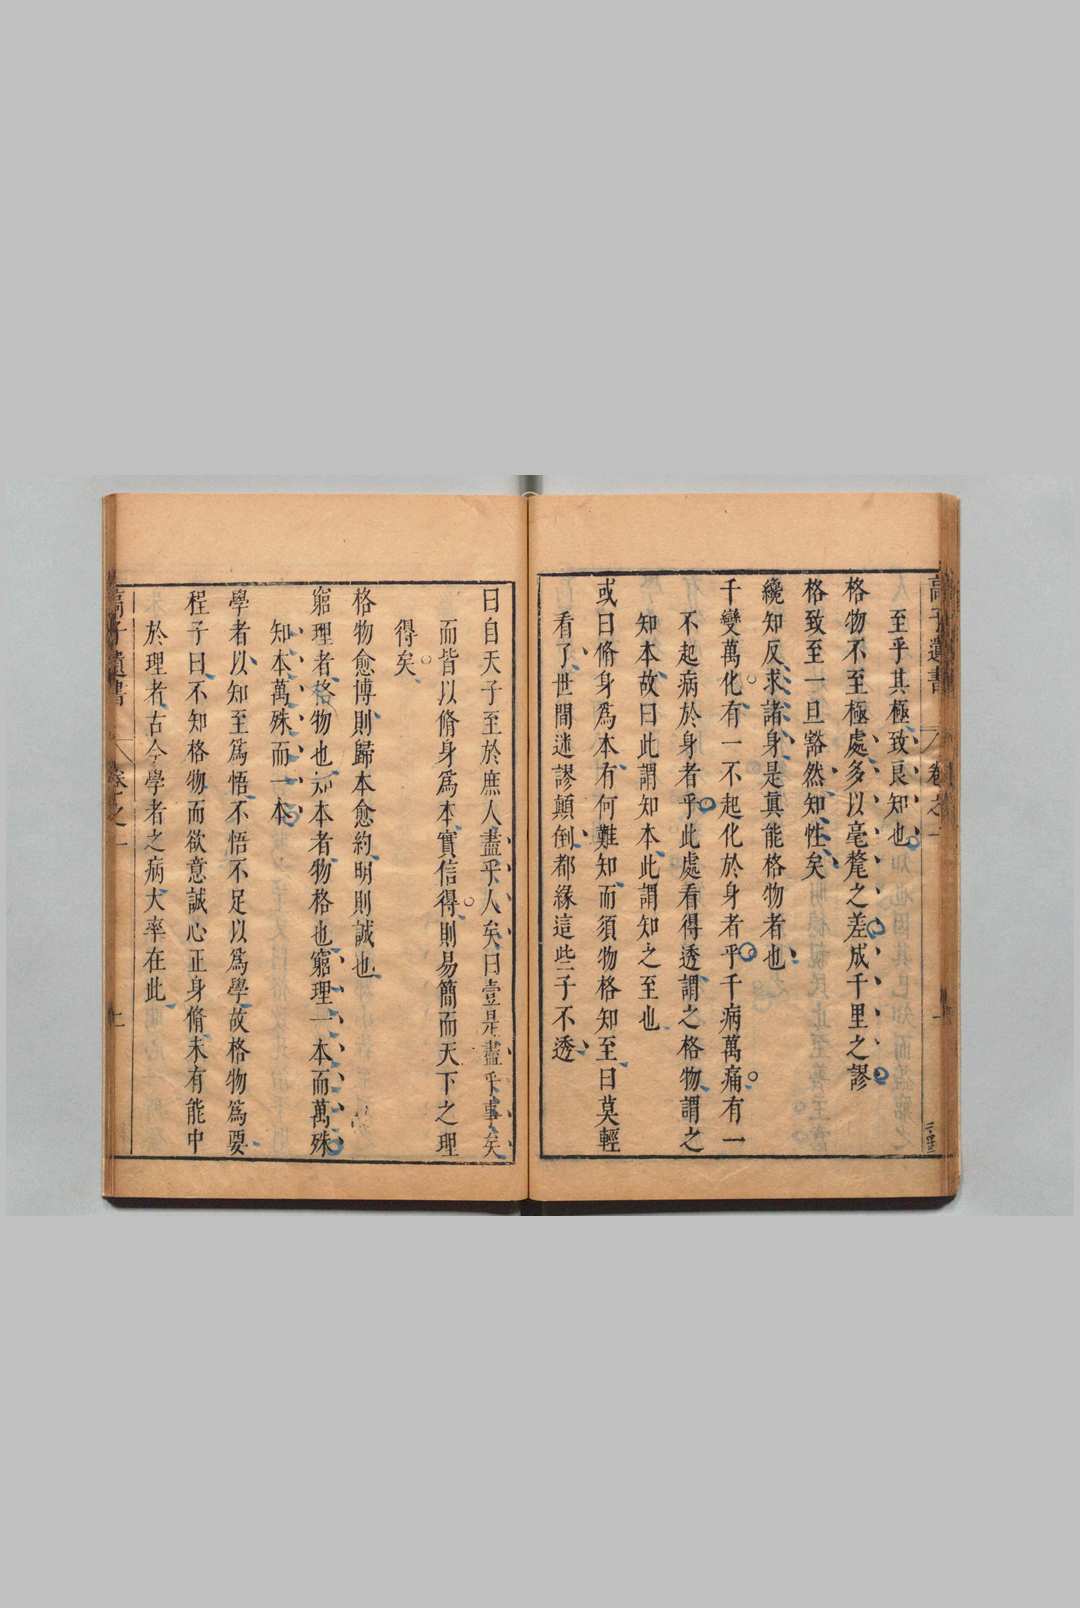 高子遺書 卷之一
至乎其極致良知也
格物不至極處多以毫氂之差成千里之謬
格致至一旦豁然知性矣
纔知反求諸身是眞能格物者也
千變萬化有一不起化於身者乎千病萬痛有一
不起病於身者乎此處看得透謂之格物謂之
知本故曰此謂知本此謂知之至也
或曰脩身爲本有何難知而須物格知至曰莫輕
看了世間迷謬顛倒都緣這些子不透
曰自天子至於庶人盡乎人矣曰壹是盡乎事矣
而皆以脩身爲本實信得則易簡而天下之理
得矣
格物愈博則歸本愈約明則誠也
窮理者格物也知本者物格也窮理一本而萬殊
知本萬殊而一本
學者以知至爲悟不悟不足以爲學故格物爲要
程子曰不知格物而欲意誠心正身脩未有能中
於理者古今學者之病大率在此
高子遺書 卷之一